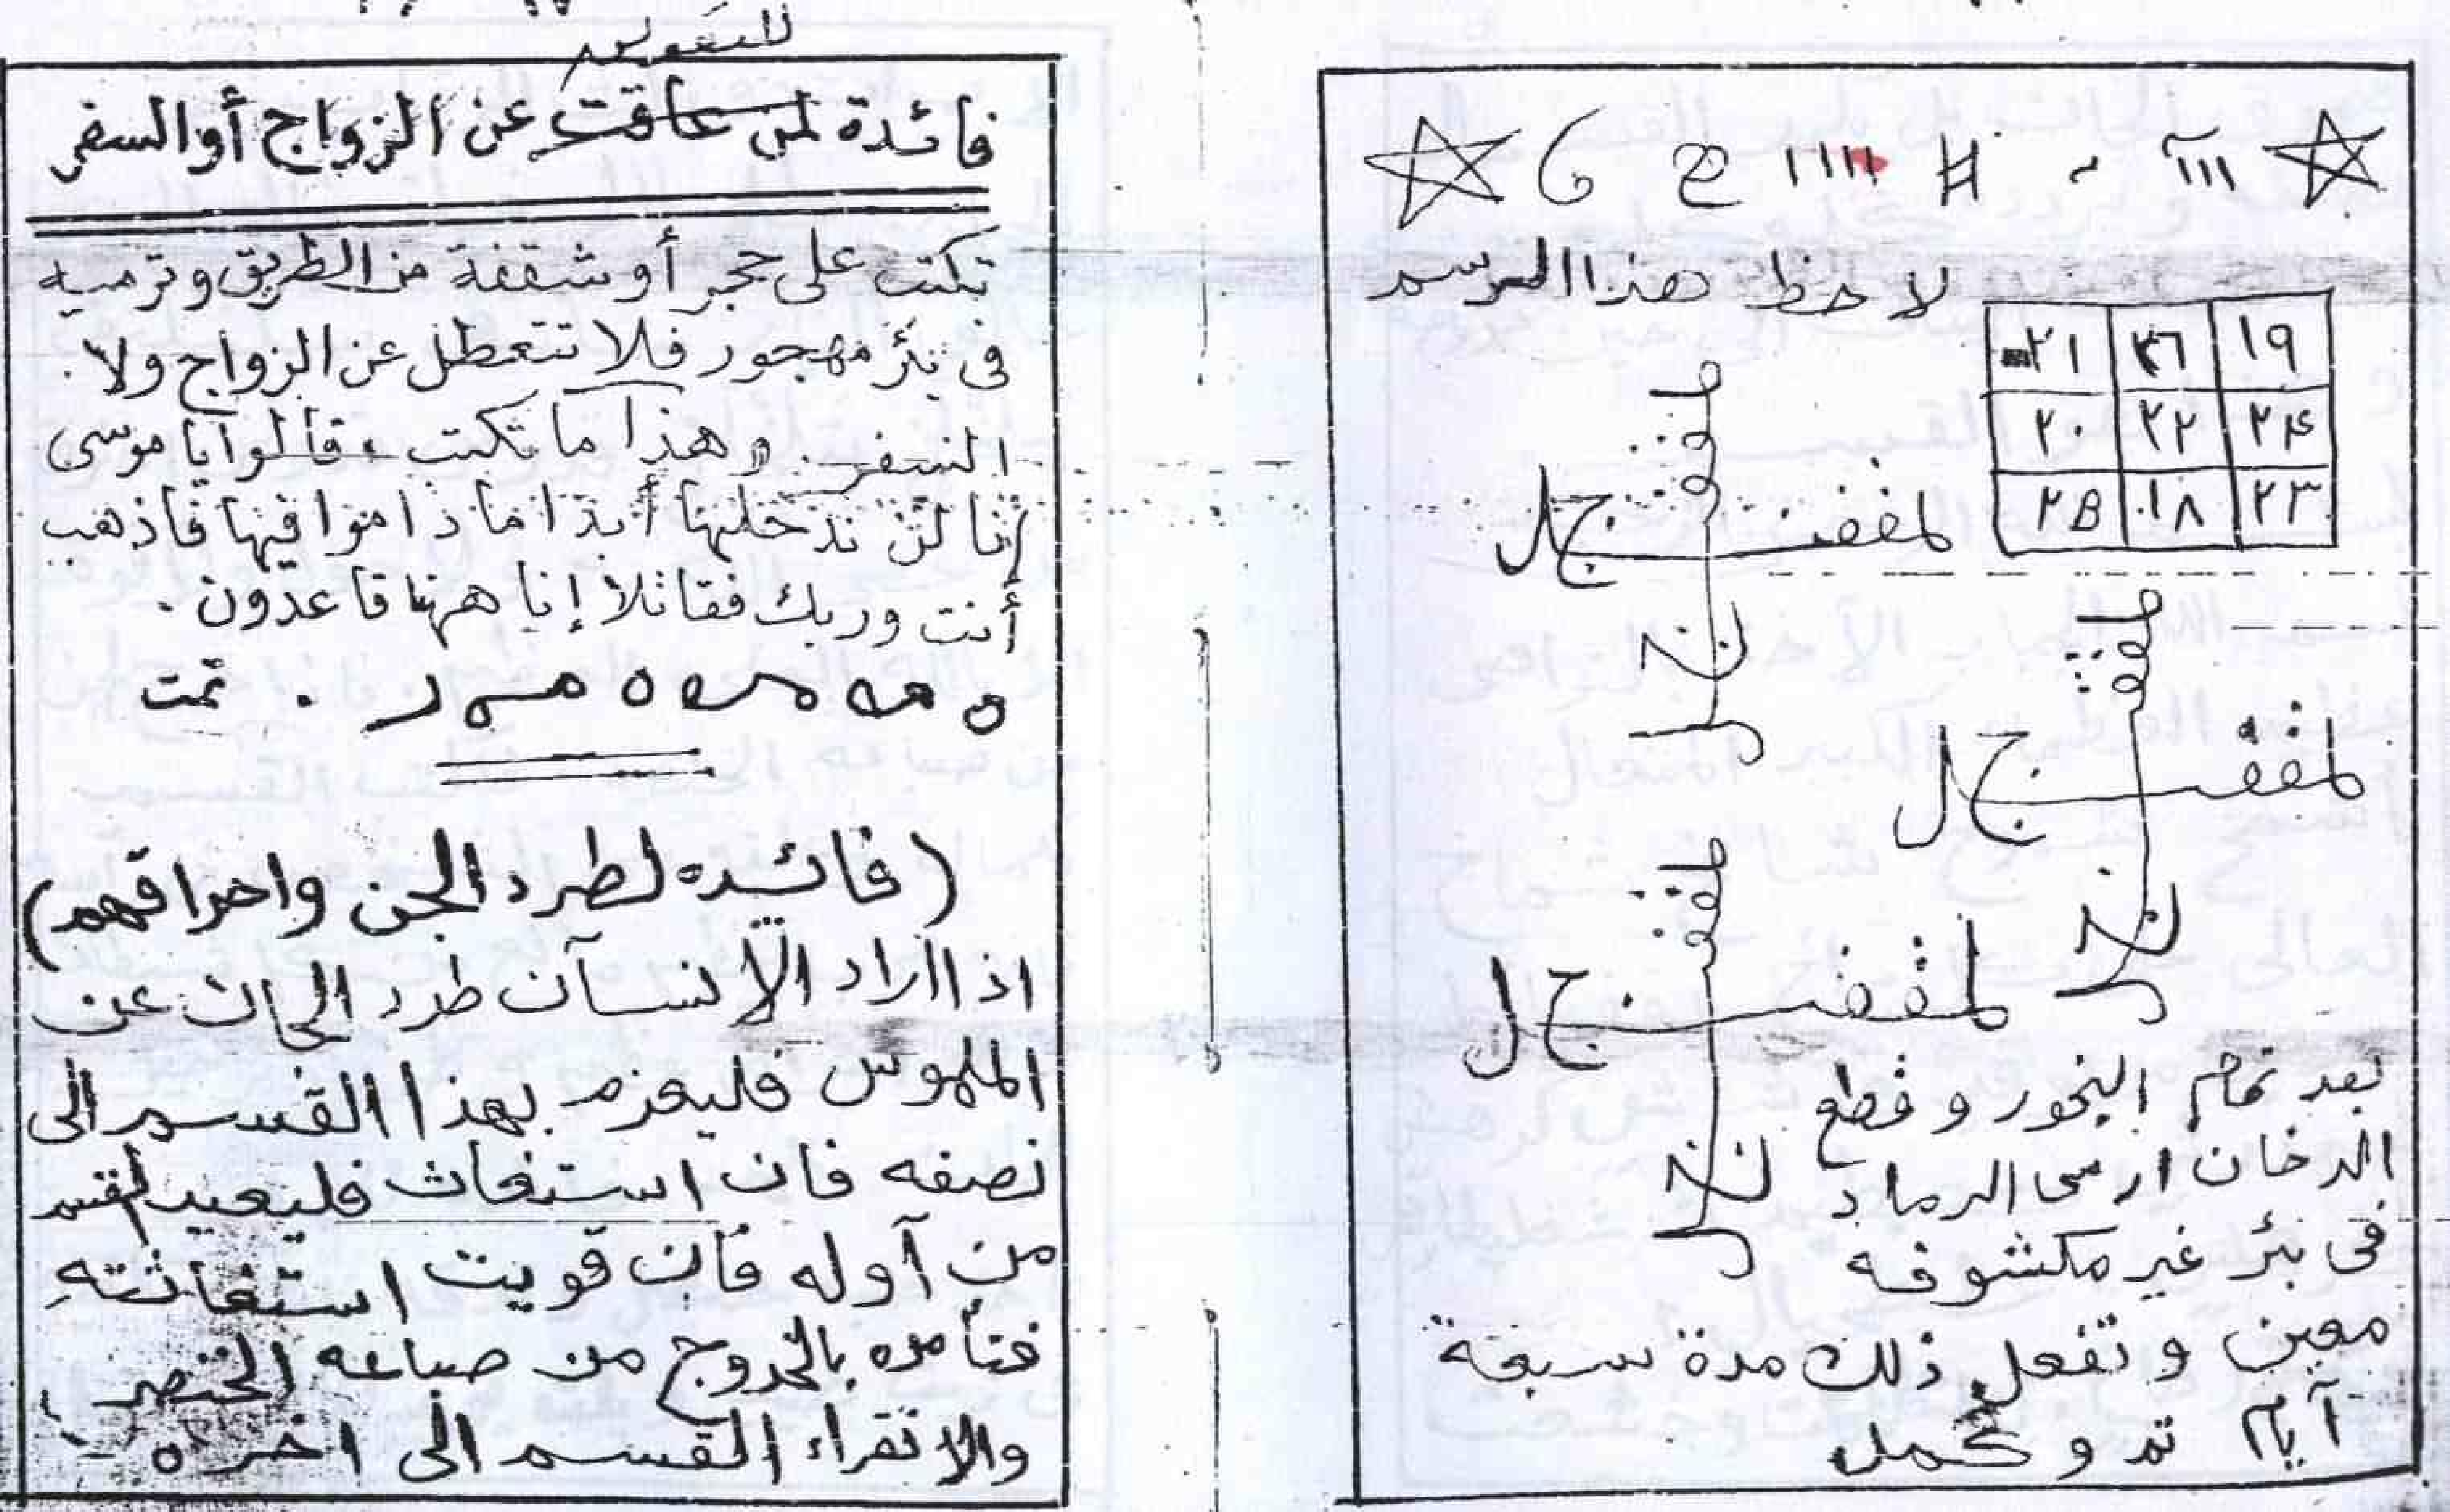 لاحظ هذا الرسم
١٩ ٢٦ ٢١
٢٤ ٢٢ ٢٠
٢٣ ١٨ ٢٥
بعد تمام البخور وقطع
الدخان ارمى الرماد
فى بئر غير مكشوفه
معين وتفعل ذلك مدة سبعة
آيام تم وكمل
للتعويق
فائدة لمن عاقت عن الزواج أو السفر
تكتب على حجر أو شقفة من الطريق وترميه
فى بئر مهجور فلا تتعطل عن الزواج ولا
السفر. وهذا ما تكتب، قالوا يا موسى
إنا لن ندخلها أبدا ما داموا فيها فاذهب
أنت وربك فقاتلا إنا ههنا قاعدون.
تمت
(فائده لطرد الجن واحراقهم)
اذا اراد الإنسآن طرد الجان عن
الملموس فليعزم بهذا القسم الى
نصفه فان استغاث فليعيد القسم
من آوله فان قويت استغاثته
فتأمره بالخروج من صباعه الخنصر
والا تقراء القسم الى اخره